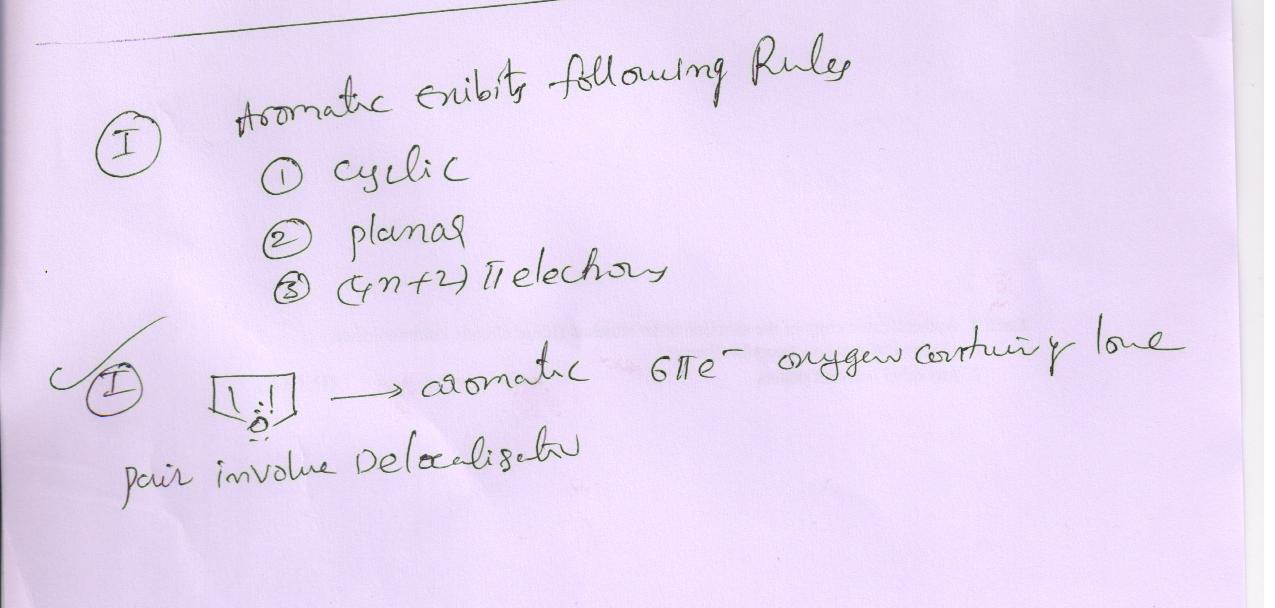 I Aromatic Exibits following Rules
① cyclic
② planar
③ (4n+2) π electrons
I → aromatic 6πe⁻ oxygen containing lone
pair involve Delocalisation